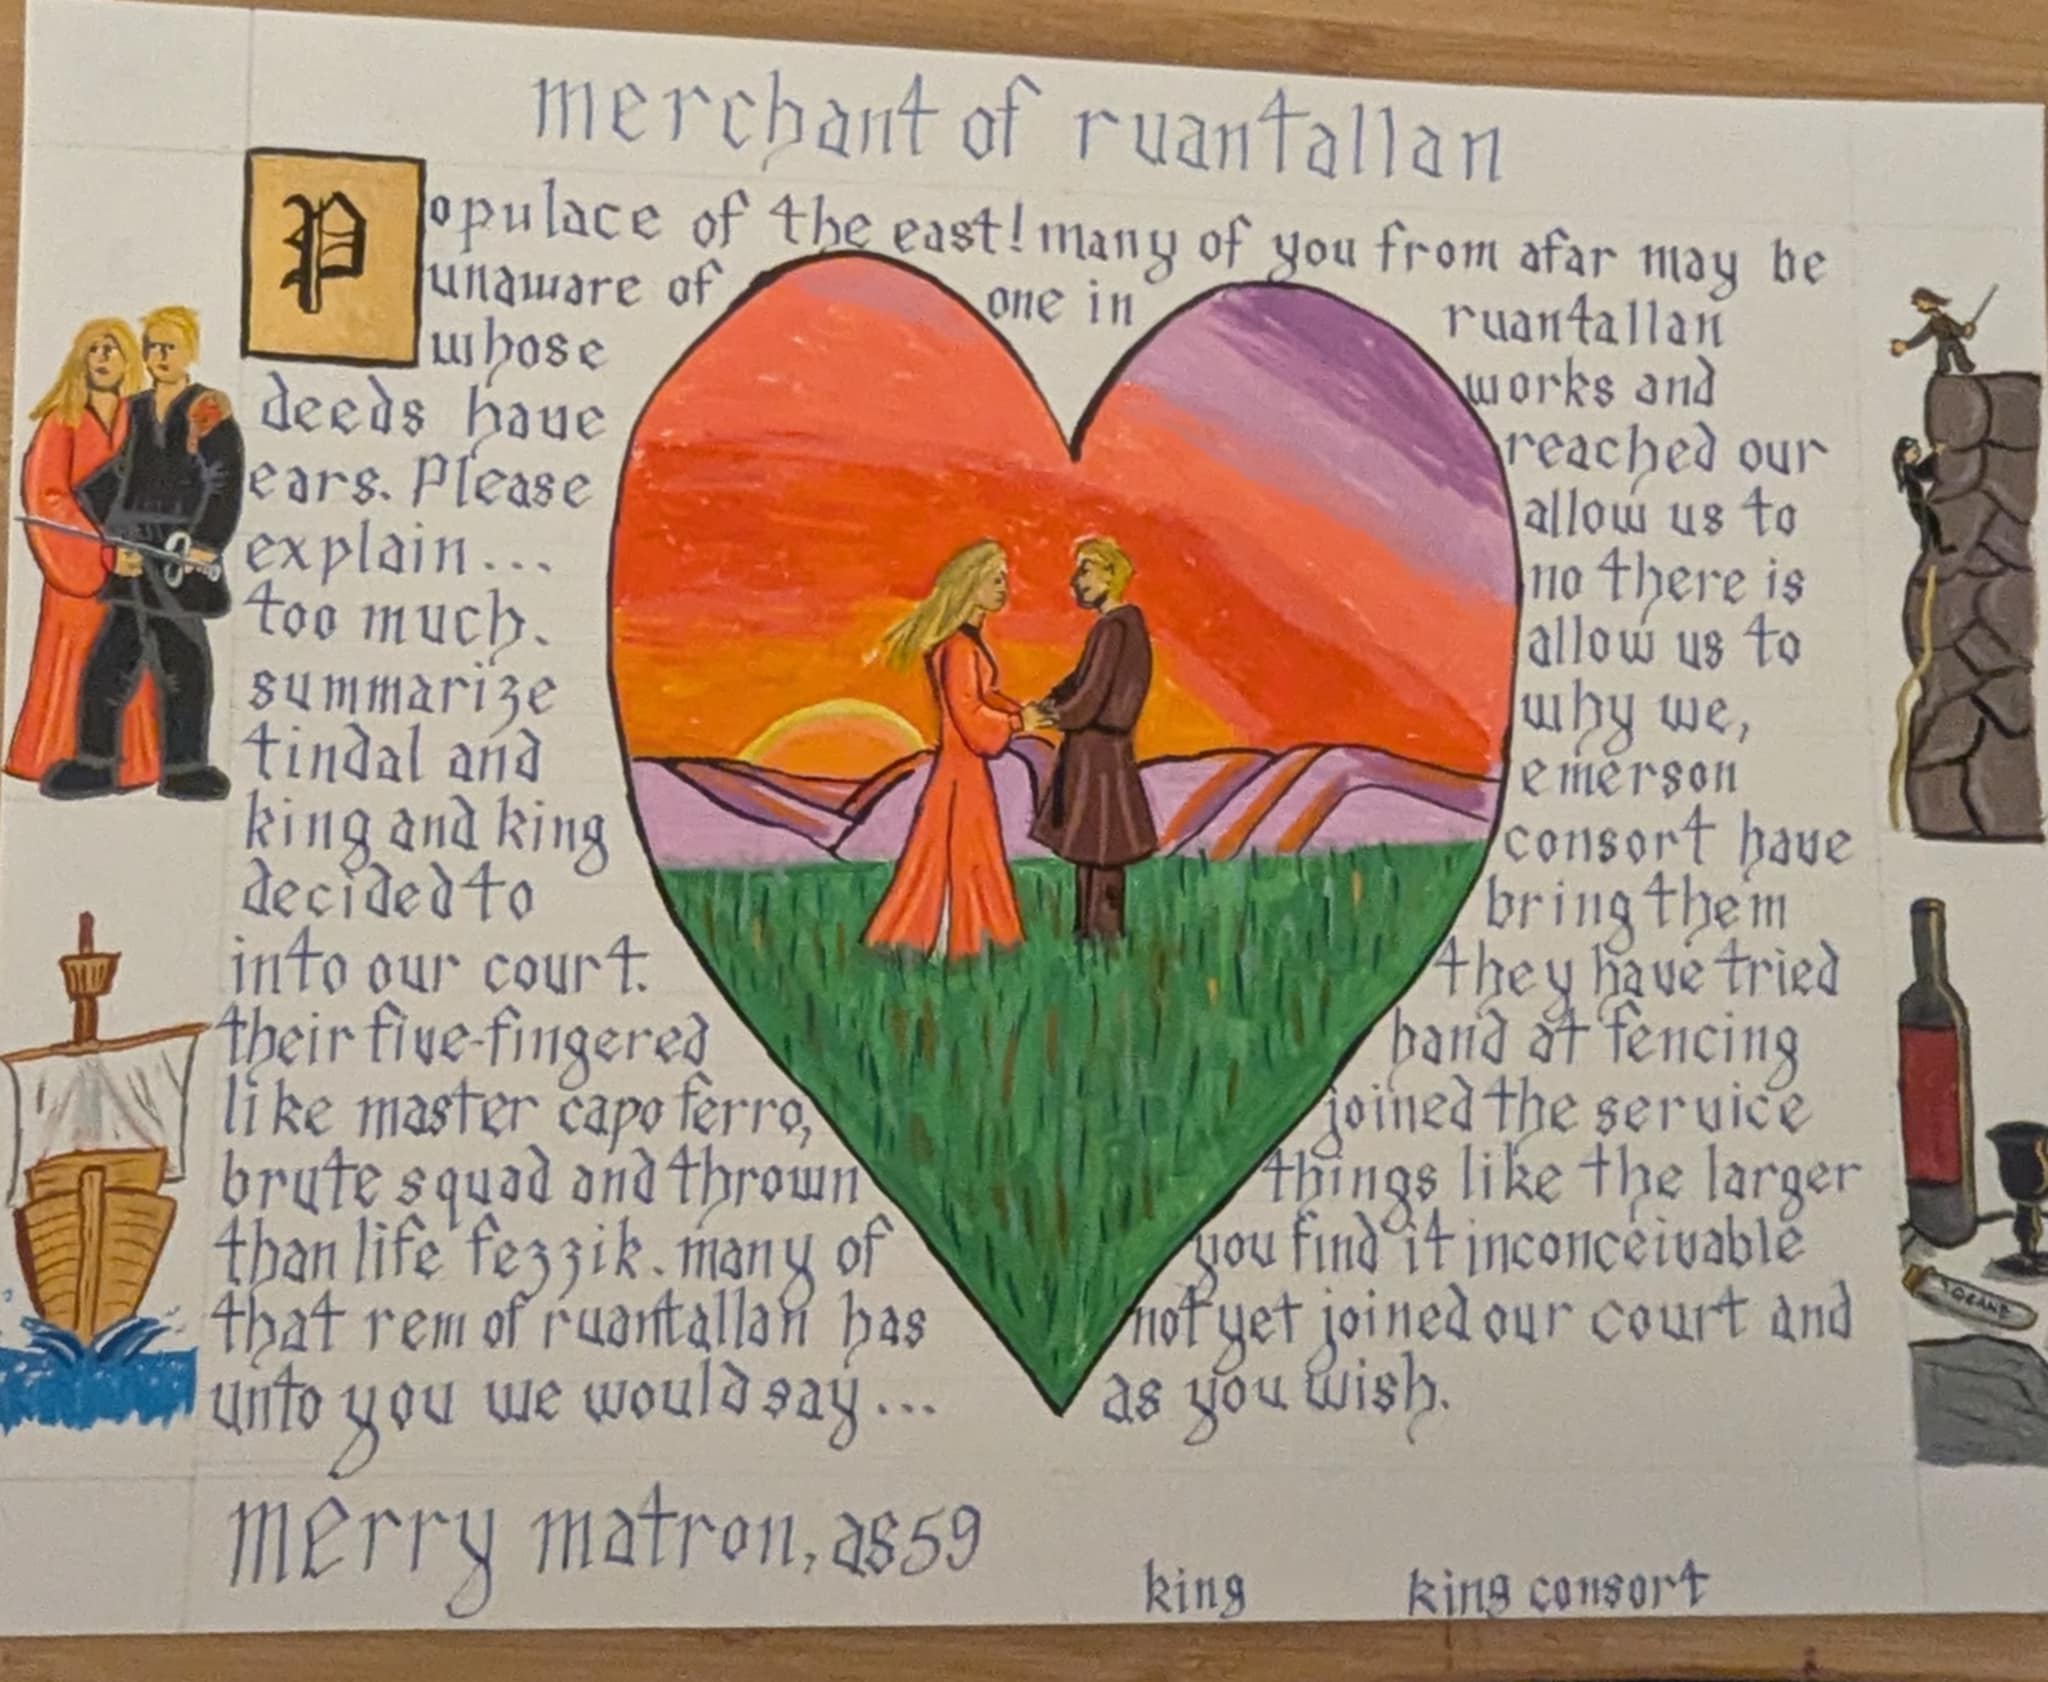 merchant of ruantallan
Populace of the east! many of you from afar may be
unaware of one in ruantallan
whose works and
deeds have reached our
ears. Please allow us to
explain... no there is
too much. allow us to
summarize why we,
tindal and emerson
king and king consort have
decided to bring them
into our court. they have tried
their five-fingered hand at fencing
like master capo ferro, joined the service
brute squad and thrown things like the larger
than life fezzik. many of you find it inconceivable
that rem of ruantallan has not yet joined our court and
unto you we would say... as you wish.
merry matron, as59
king king consort
IOCANE